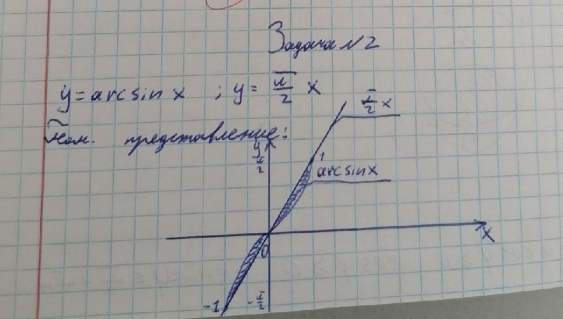 Задача №2
y = arcsin x ; y = π/2 x
Геом. представление:
y
π/2
π/2 x
1
arcsin x
0
x
-1
-π/2